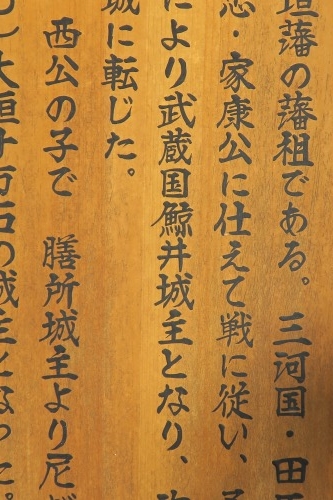 垣藩の藩祖である。三河国・田
・家康公に仕えて戦に従い、
により武蔵国鯨井城主となり、
城に転じた。
西公の子で　膳所城主より尼
大垣十万石の城主となった。